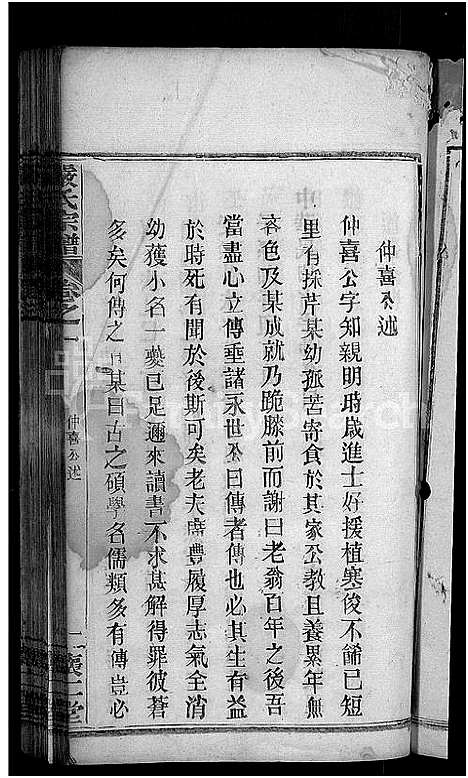 仲喜公述
仲喜公字知親明時歲進士好援植寒俊不餙已短
里有採芹某幼孤苦寄食於其家公教且養累年無
吝色及某成就乃跪膝前而謝曰老翁百年之後吾
當盡心立傳垂諸永世公曰傳者傳也必其生有益
於時死有聞於後斯可矣老夫席豊履厚志氣全消
幼獲小名一夔已足邇來讀書不求甚解得罪彼蒼
多矣何傳之 某曰古之碩學名儒類多有傳豈必
嚴氏宗譜
卷之一
仲喜公述